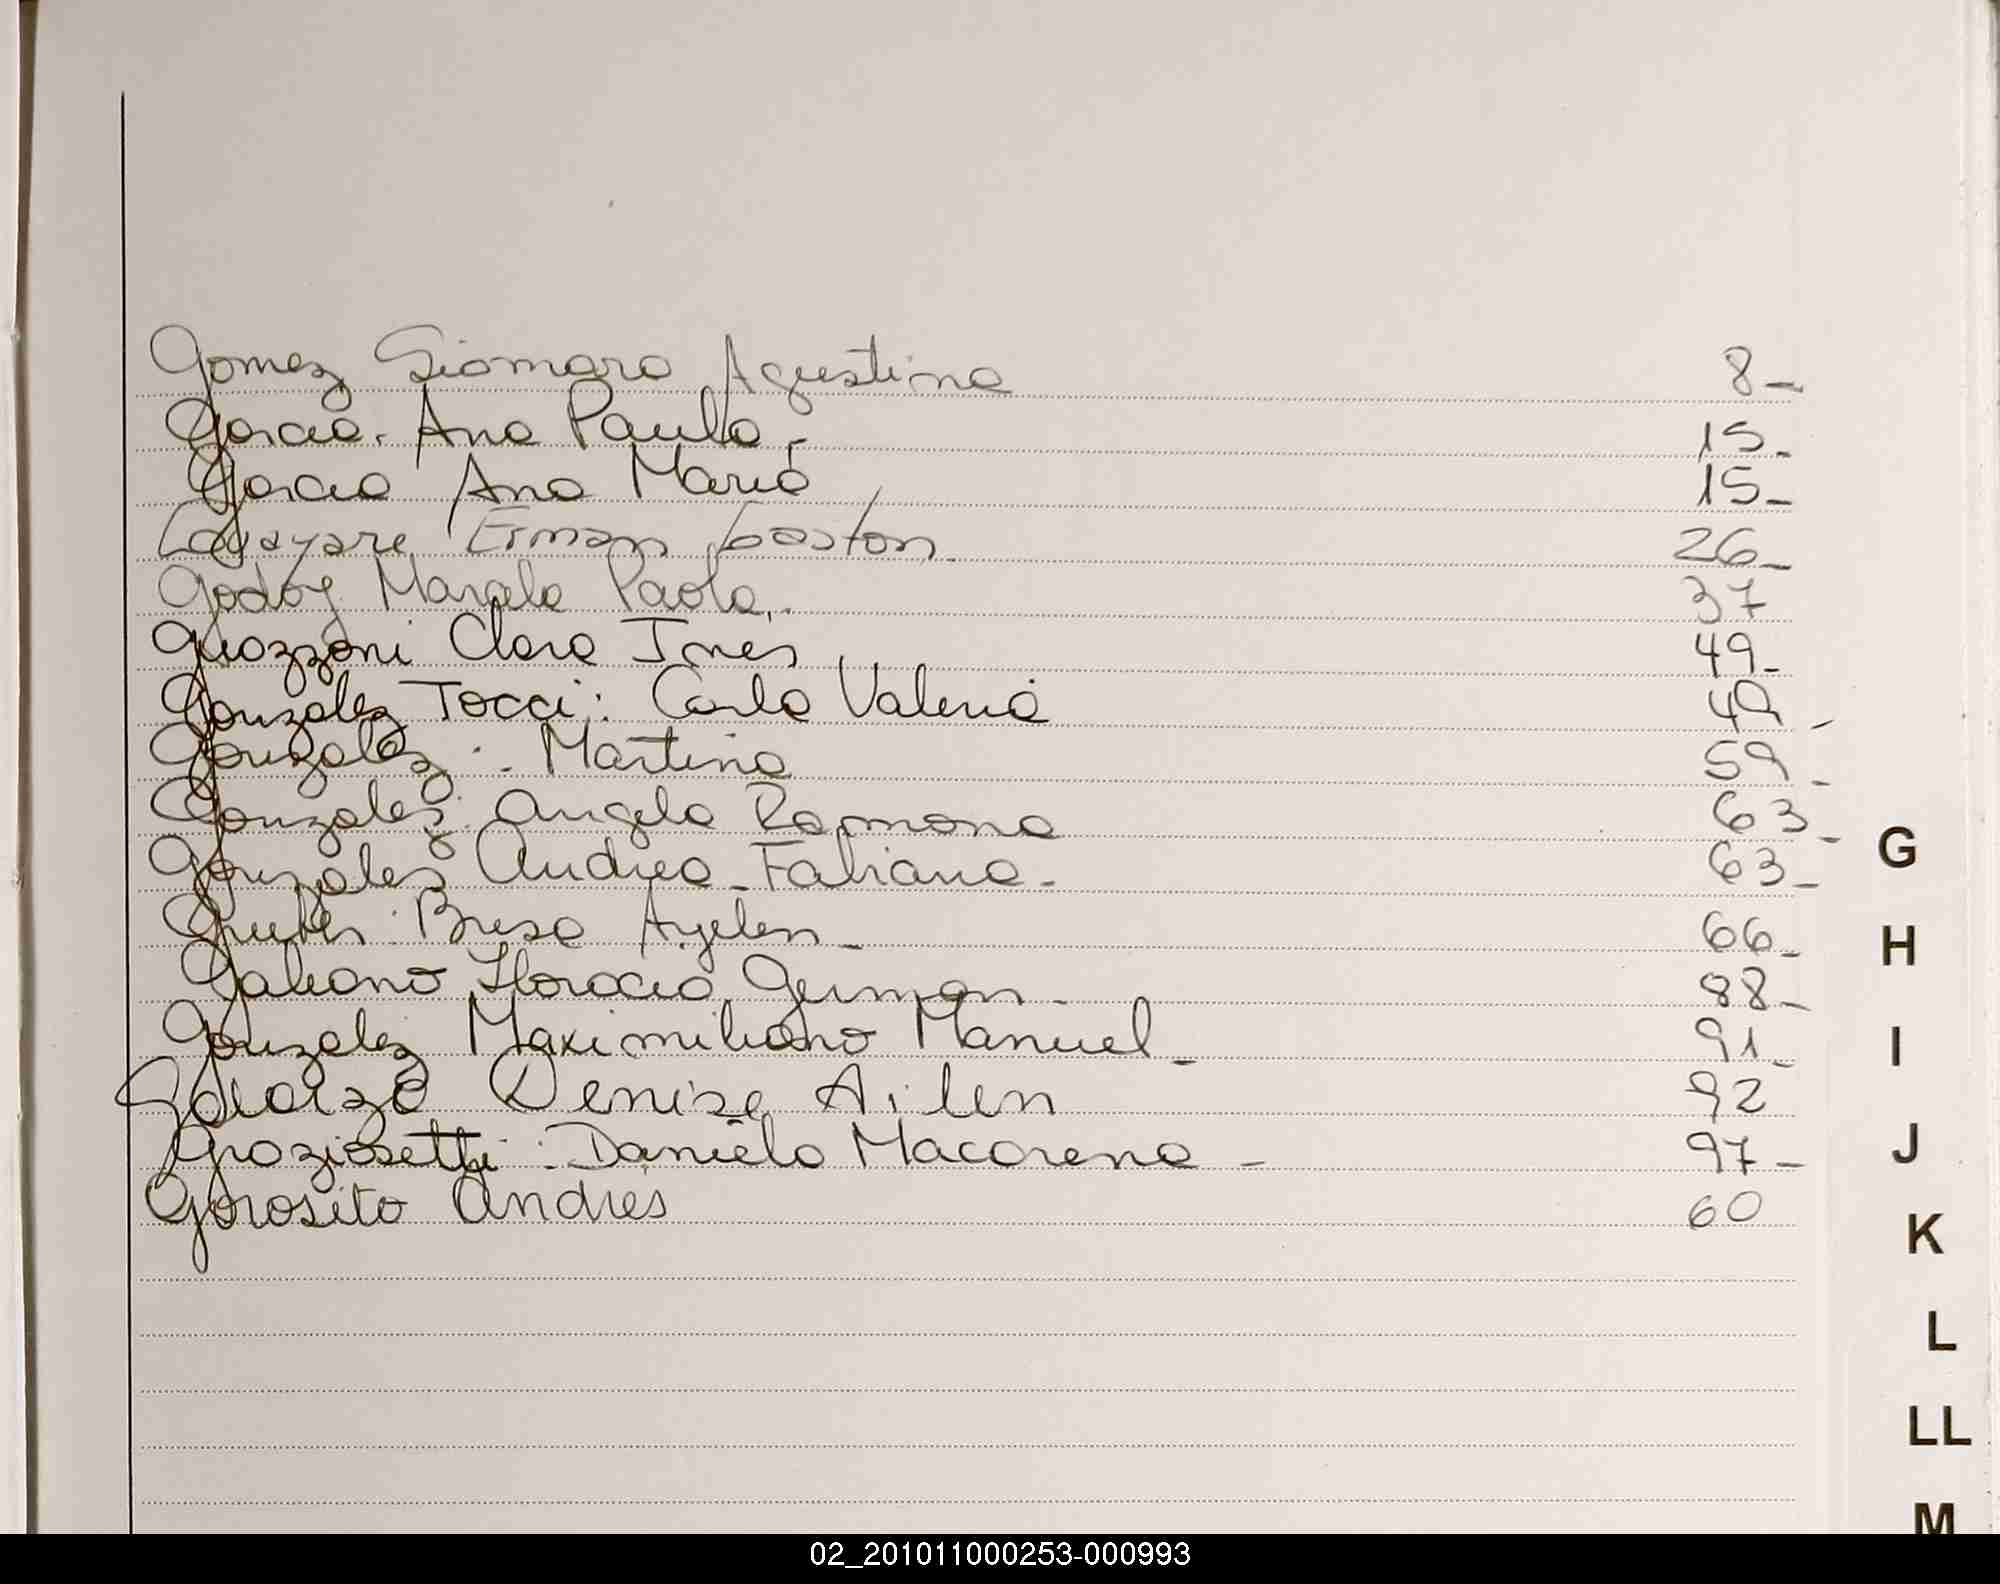 Gomez Giomara Agustina 8-
Garcia. Ana Paula.- 15-
Garcia Ana Maria 15-
Erman Gaston. 26-
Godoy Marcela Paola. 37
Guazzoni Clara Ines 49-
Gonzalez Tocci: Carla Valeria 49-
Gonzalez: Martina 59-
Gonzalez: Angela Ramona 63-
Gonzalez Andrea-Fabiana- 63-
Brisa Ayelen- 66-
Galeano Horacio German- 88-
Gonzalez Maximiliano Manuel- 91-
Denise Ailen 92
Graziosetti: Daniela Macarena- 97-
Gorosito Andres 60
G
H
I
J
K
L
LL
M
02_201011000253-000993